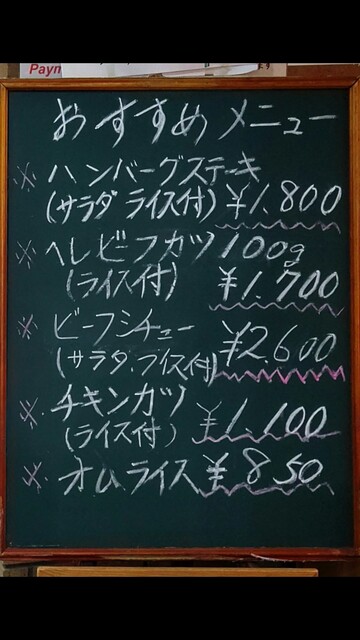 Payn
おすすめメニュー
※ ハンバーグステーキ
(サラダ ライス付) ¥1.800
※ ヘレビーフカツ 100g
(ライス付) ¥1.700
※ ビーフシチュー
(サラダ.ライス付) ¥2.600
※ チキンカツ
(ライス付) ¥1.100
※ オムライス ¥850